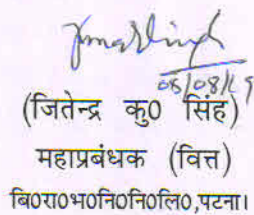 05/08/19
(जितेन्द्र कु0 सिंह)
महाप्रबंधक (वित्त)
बि0रा0भ0नि0नि0लि0,पटना।